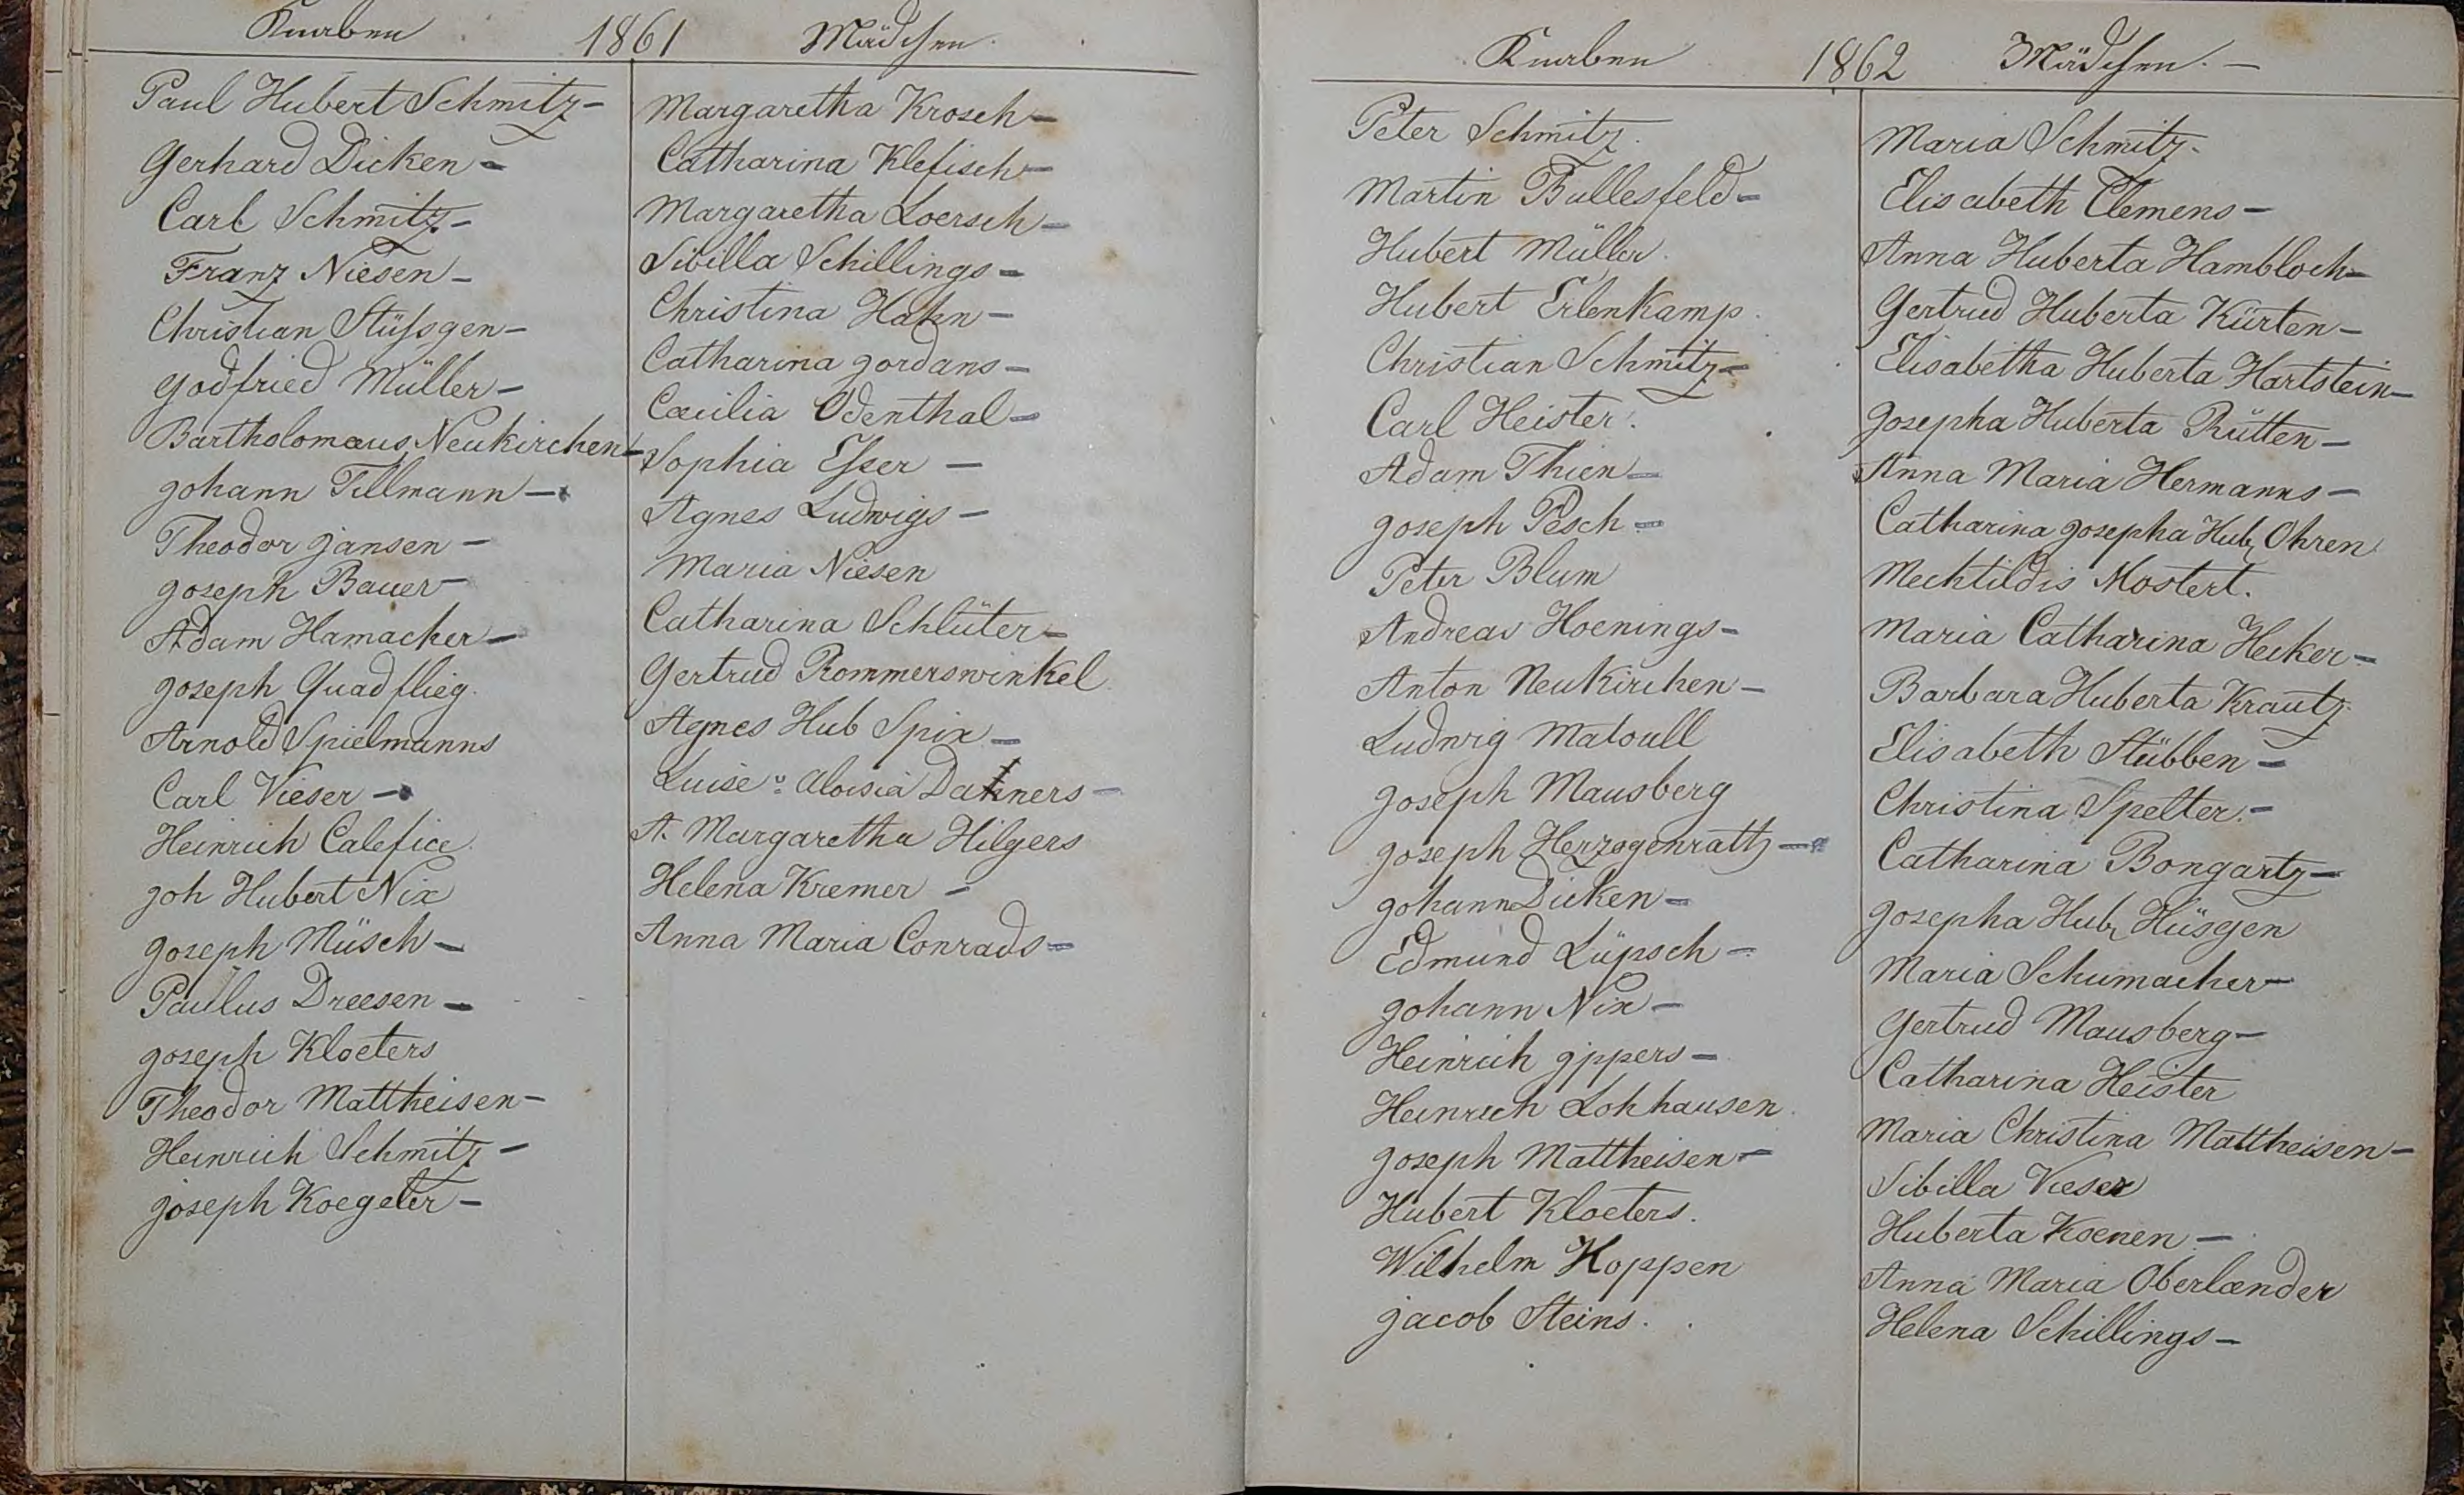 Knaben 1861 Mädchen
Paul Hubert Schmitz –
Gerhard Dicken –
Carl Schmitz –
Franz Niesen –
Christian Stüßgen –
Godfried Müller –
Bartholomæus Neukirchen –
Johann Tillmann –
Theodor Jansen –
Joseph Bauer –
Adam Hamacher –
Joseph Quadflieg.
Arnold Spielmanns
Carl Vieser –
Heinrich Calefice.
Joh Hubert Nix
Joseph Müsch –
Paulus Dreesen –
Joseph Kloeters
Theodor Mattheisen –
Heinrich Schmitz –
Joseph Koegeler –
Margaretha Krosch –
Catharina Klefisch –
Margaretha Loersch –
Sibilla Schillings –
Christina Hahn –
Catharina Jordans –
Cæcilia Odenthal –
Sophia Eßer –
Agnes Ludwigs –
Maria Niesen
Catharina Schlüter –
Gertrud Rommerswinkel.
Agnes Hub Spix –
Luise Aloisia Dahners –
A. Margaretha Hilgers
Helena Kremer –
Anna Maria Conrads –
Knaben 1862 Mädchen. –
Peter Schmitz.
Martin Bullesfeld –
Hubert Müller.
Hubert Erlenkamp.
Christian Schmitz –
Carl Heister.
Adam Thien –
Joseph Pesch –
Peter Blum
Andreas Hoenings –
Anton Neukirchen –
Ludwig Matoull
Joseph Mausberg
Joseph Herzogenrath –
Johann Dicken –
Edmund Lüpsch –
Johann Nix –
Heinrich Ippers –
Heinrich Lohhausen.
Joseph Mattheisen –
Hubert Kloeters.
Wilhelm Hoppen
Jacob Steins.
Maria Schmitz.
Elisabeth Clemens –
Anna Huberta Hambloch –
Gertrud Huberta Kürten –
Elisabetha Huberta Hartstein –
Josepha Huberta Rütten –
Anna Maria Hermanns –
Catharina Josepha Hub. Ohren
Mechtildis Mostert.
Maria Catharina Hecker –
Barbara Huberta Krautz.
Elisabeth Stübben –
Christina Spelter. –
Catharina Bongartz –
Josepha Hub. Hüsgen
Maria Schumacher –
Gertrud Mausberg –
Catharina Heister
Maria Christina Mattheisen –
Sibilla Vieser
Huberta Koenen –
Anna Maria Oberlænder
Helena Schillings –